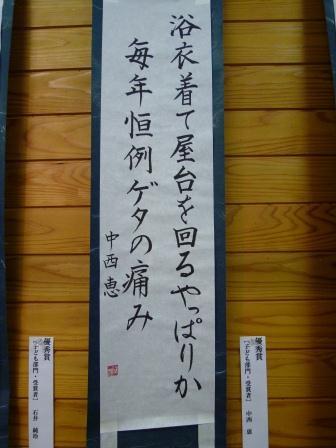 浴衣着て屋台を回るやっぱりか
毎年恒例ゲタの痛み
中西恵
優秀賞
【子ども部門・受賞者】 中西 恵
優秀賞
【子ども部門・受賞者】 石井